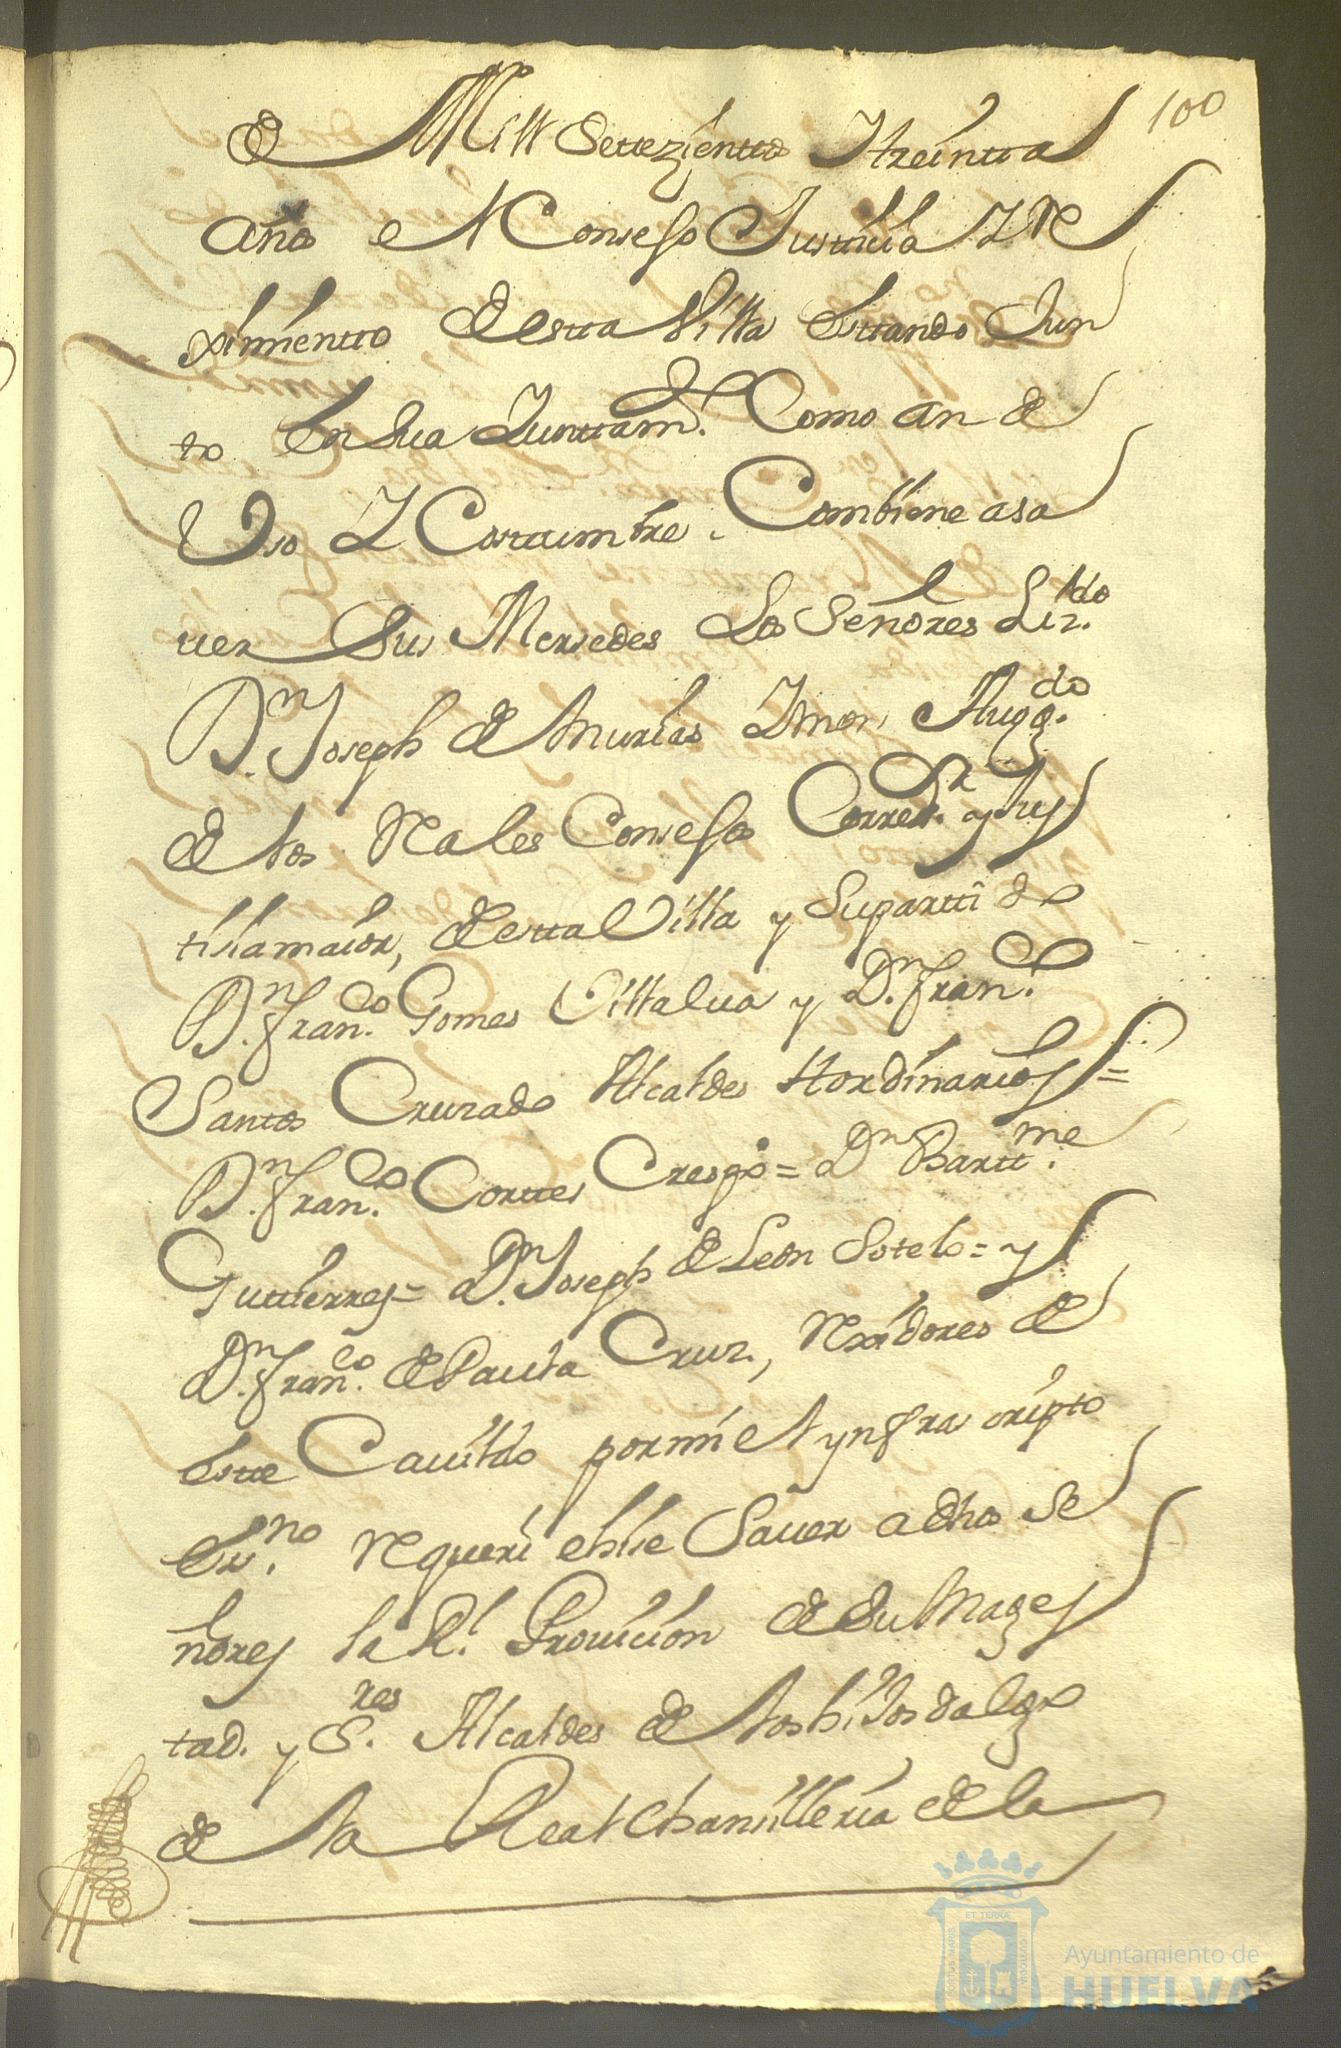 100
de Mill Settezientos Y treinta
años el Consejo Justicia Y Re
ximientto de esta Villa estando Jun
to en sua Junttam.to Como an de
Uso Y Costtumbre. Combiene a sa
uer Sus Mersedes Los Señores Liz.do
D.n Joseph de Murias Abog.do
de los Rales Consejos Corred.r y Jus
tisia maior, de esta Villa y su parttido
D.n Fran.co Gomes Villalua y D.n Fran.co
Santos Cruzado Alcaldes Hordinarios =
D.n Fran.co Corttes Crespo = D.n Bartt.me
Guttierres = D.n Joseph de Leon Sotelo = y
D.n Fran.co de Paula Cruz, Rexidores de
este Cauildo por mi el ynfrascripto
Es.no Requeri e hise Sauer a dhos Se
ñores la R.l Prouicion de su Mages
tad. y S.res Alcaldes de los hijosdalgo
de la Real Chansilleria de la
Ayuntamiento de
HUELVA